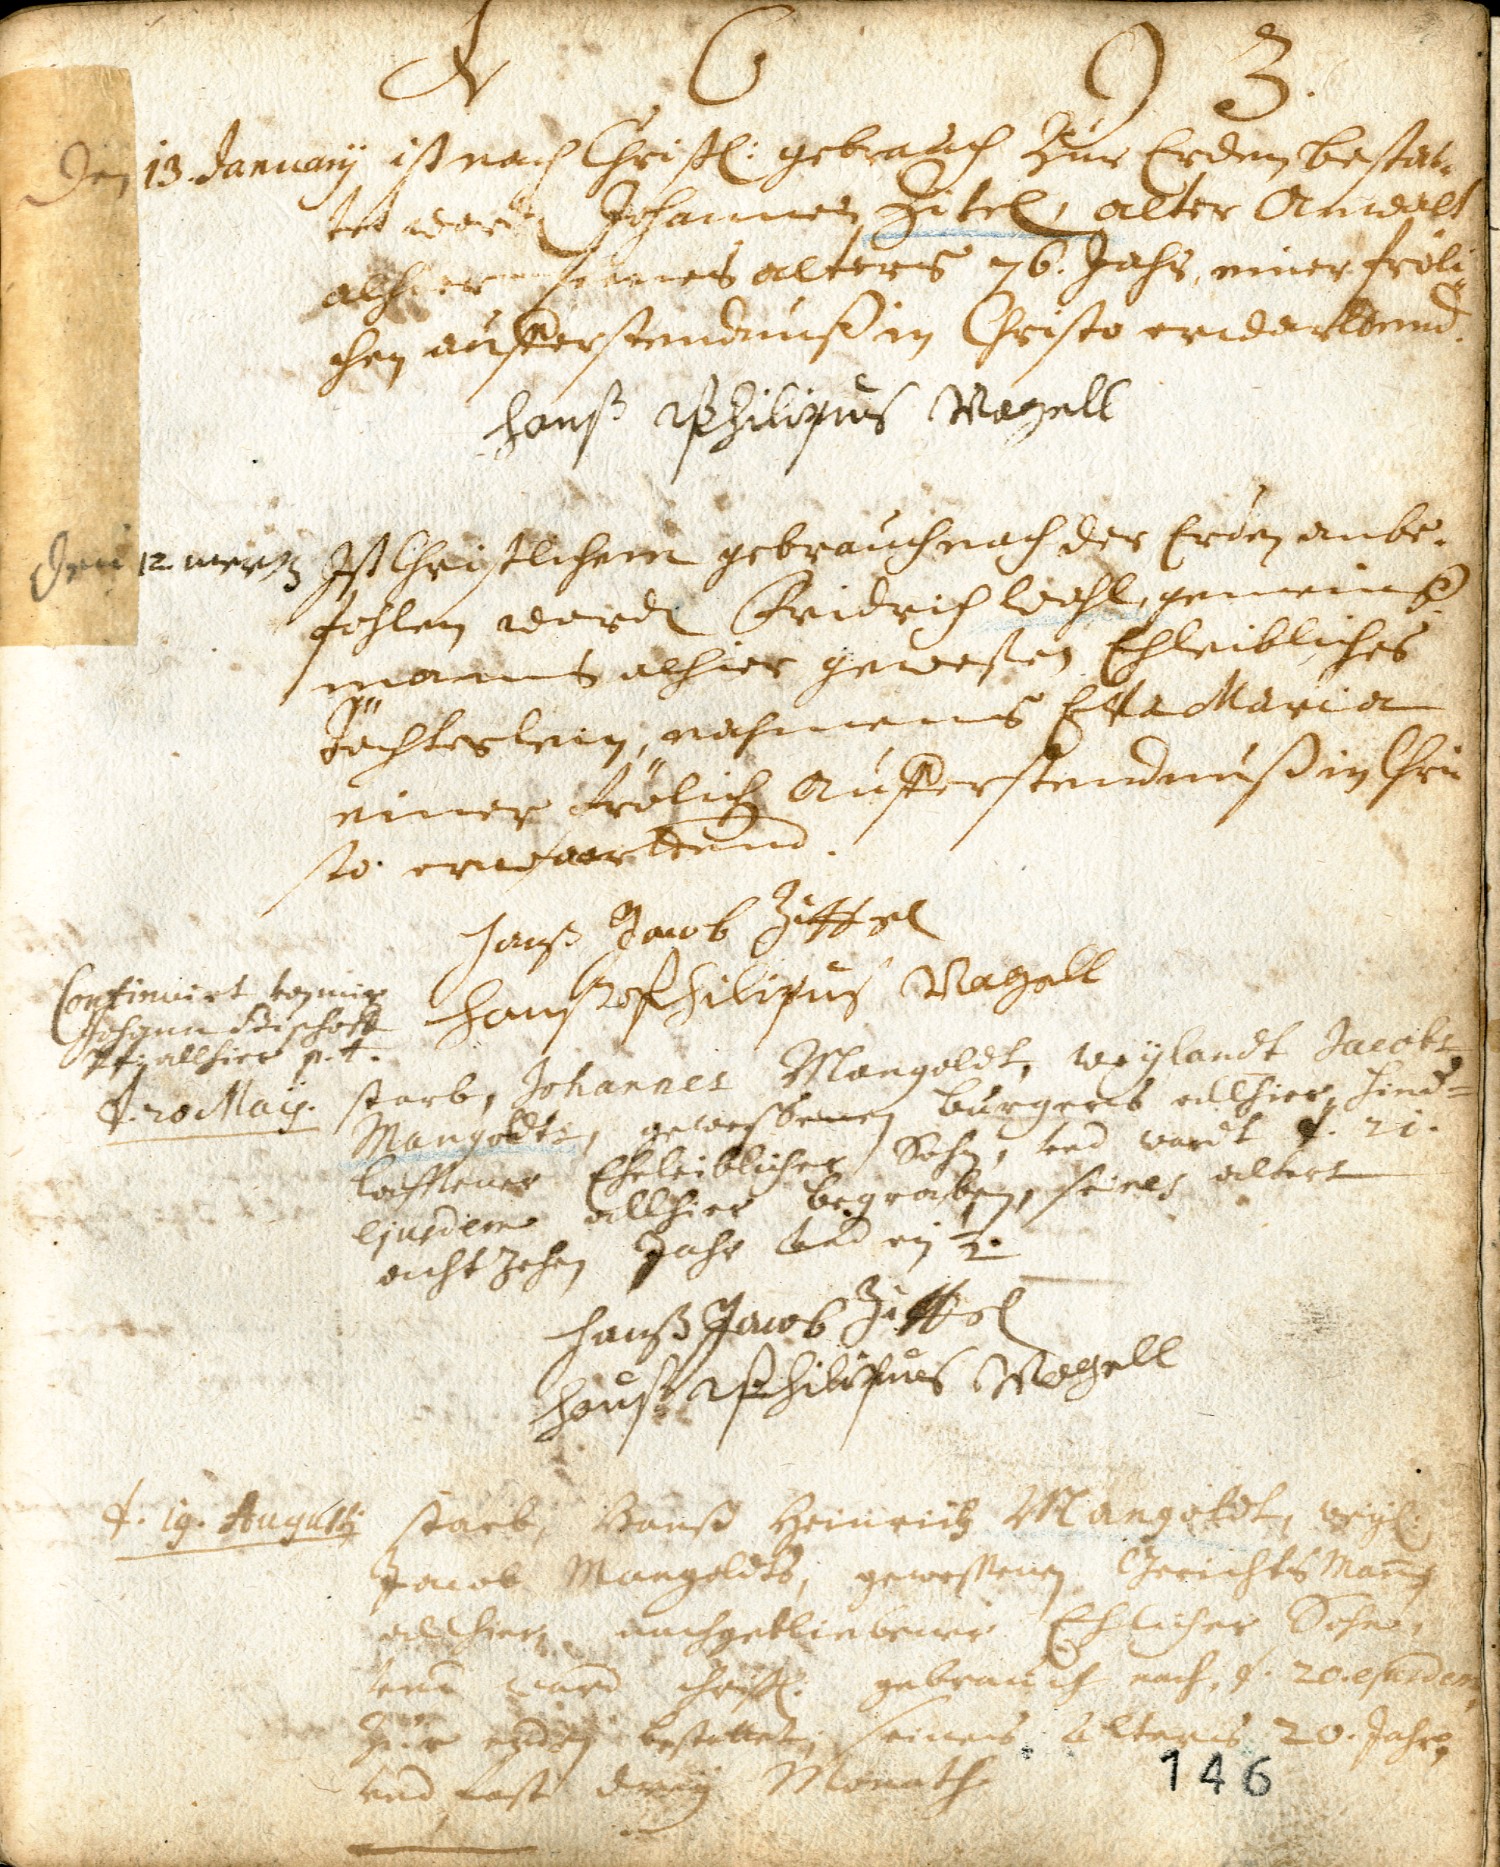 1693.
Den 13. January ist nach Christl: gebrauch Zur Erden bestat-
tet word Johannes Zitel, alter Anwalt
alhier seines alters 76. Jahr, einer fröli
chen aufferstendnuß in Christo erwarttend.
Hanß Philipus Nagell
Den 12 mertz Ist Christlichem gebrauch nach der Erden anbe-
fohlen word Fridrich wohl, gemeinß
manns alhier geweßen Ehleibliches
Töchterlein, nahmens Eva Maria
einer frölich Aufferstendnuß in Chri
sto erwarttend.
Hanß Jacob Zittel
Hanß Philipus Nagell
Continuirt von mir
Johann Bischoff
Pf. allhier p. t.
d. 20 Maij. starb, Johannes Mangoldt, weylandt Jacobs
Mangoldts, gewessenen burgers allhier, hind-
lassener Eheleiblicher Sohn, vnd wardt d. 21.
ejusdem allhier begraben, seines alters
achtzehen Jahr vnd ein ½.
Hanß Jacob Zittel
Hanß Philipus Nagell
d. 19. Augusti starb, Hanß Heinrich Mangoldt, weyl:
Jacob Mangoldts, gewessenen GerichtsMañs
allhier, nachgebliebener Ehlicher Sohn,
vnd ward Christl: gebrauch nach, d. 20. ejusdem,
Zur erden bestattet, seines Alters 20. Jahr,
vnd fast drey Monath
146